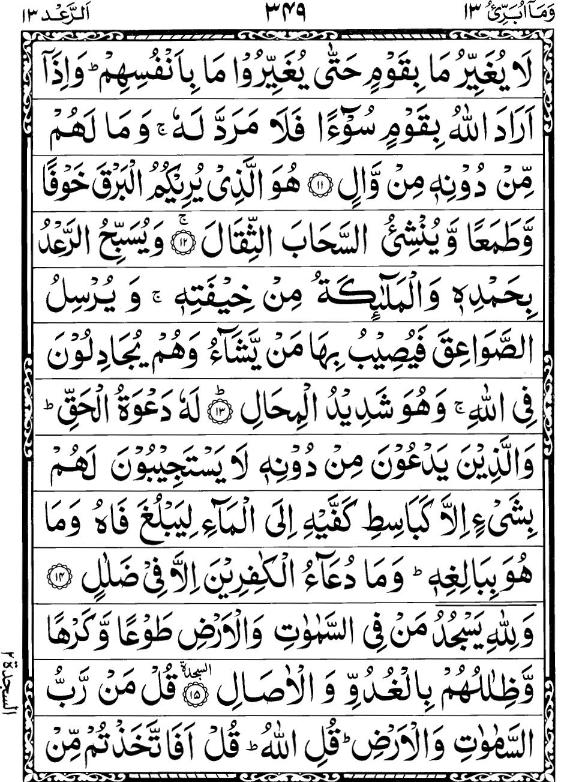 وَمَآ اُبَرِّئُ ١٣ ٣٤٩ اَلرَّعْد ١٣
لَا يُغَيِّرُ مَا بِقَوْمٍ حَتّٰى يُغَيِّرُوْا مَا بِاَنْفُسِهِمْ ؕ وَاِذَآ
اَرَادَ اللّٰهُ بِقَوْمٍ سُوْٓءًا فَلَا مَرَدَّ لَهٗ ۚ وَ مَا لَهُمْ
مِّنْ دُوْنِهٖ مِنْ وَّالٍ ۝۱۱ هُوَ الَّذِيْ يُرِيْكُمُ الْبَرْقَ خَوْفًا
وَّطَمَعًا وَّ يُنْشِئُ السَّحَابَ الثِّقَالَ ۝۱۲ۚ وَيُسَبِّحُ الرَّعْدُ
بِحَمْدِهٖ وَالْمَلٰٓئِكَةُ مِنْ خِيْفَتِهٖ ۚ وَ يُرْسِلُ
الصَّوَاعِقَ فَيُصِيْبُ بِهَا مَنْ يَّشَآءُ وَهُمْ يُجَادِلُوْنَ
فِي اللّٰهِ ۚ وَهُوَ شَدِيْدُ الْمِحَالِ ۝۱۳ؕ لَهٗ دَعْوَةُ الْحَقِّ ؕ
وَالَّذِيْنَ يَدْعُوْنَ مِنْ دُوْنِهٖ لَا يَسْتَجِيْبُوْنَ لَهُمْ
بِشَيْءٍ اِلَّا كَبَاسِطِ كَفَّيْهِ اِلَى الْمَآءِ لِيَبْلُغَ فَاهُ وَمَا
هُوَ بِبَالِغِهٖ ؕ وَمَا دُعَآءُ الْكٰفِرِيْنَ اِلَّا فِيْ ضَلٰلٍ ۝۱۴
وَلِلّٰهِ يَسْجُدُ مَنْ فِي السَّمٰوٰتِ وَالْاَرْضِ طَوْعًا وَّكَرْهًا
وَّظِلٰلُهُمْ بِالْغُدُوِّ وَ الْاٰصَالِ ۝۱۵ السجدة قُلْ مَنْ رَّبُّ
السَّمٰوٰتِ وَالْاَرْضِ ؕ قُلِ اللّٰهُ ؕ قُلْ اَفَاتَّخَذْتُمْ مِّنْ
السجدة ٢